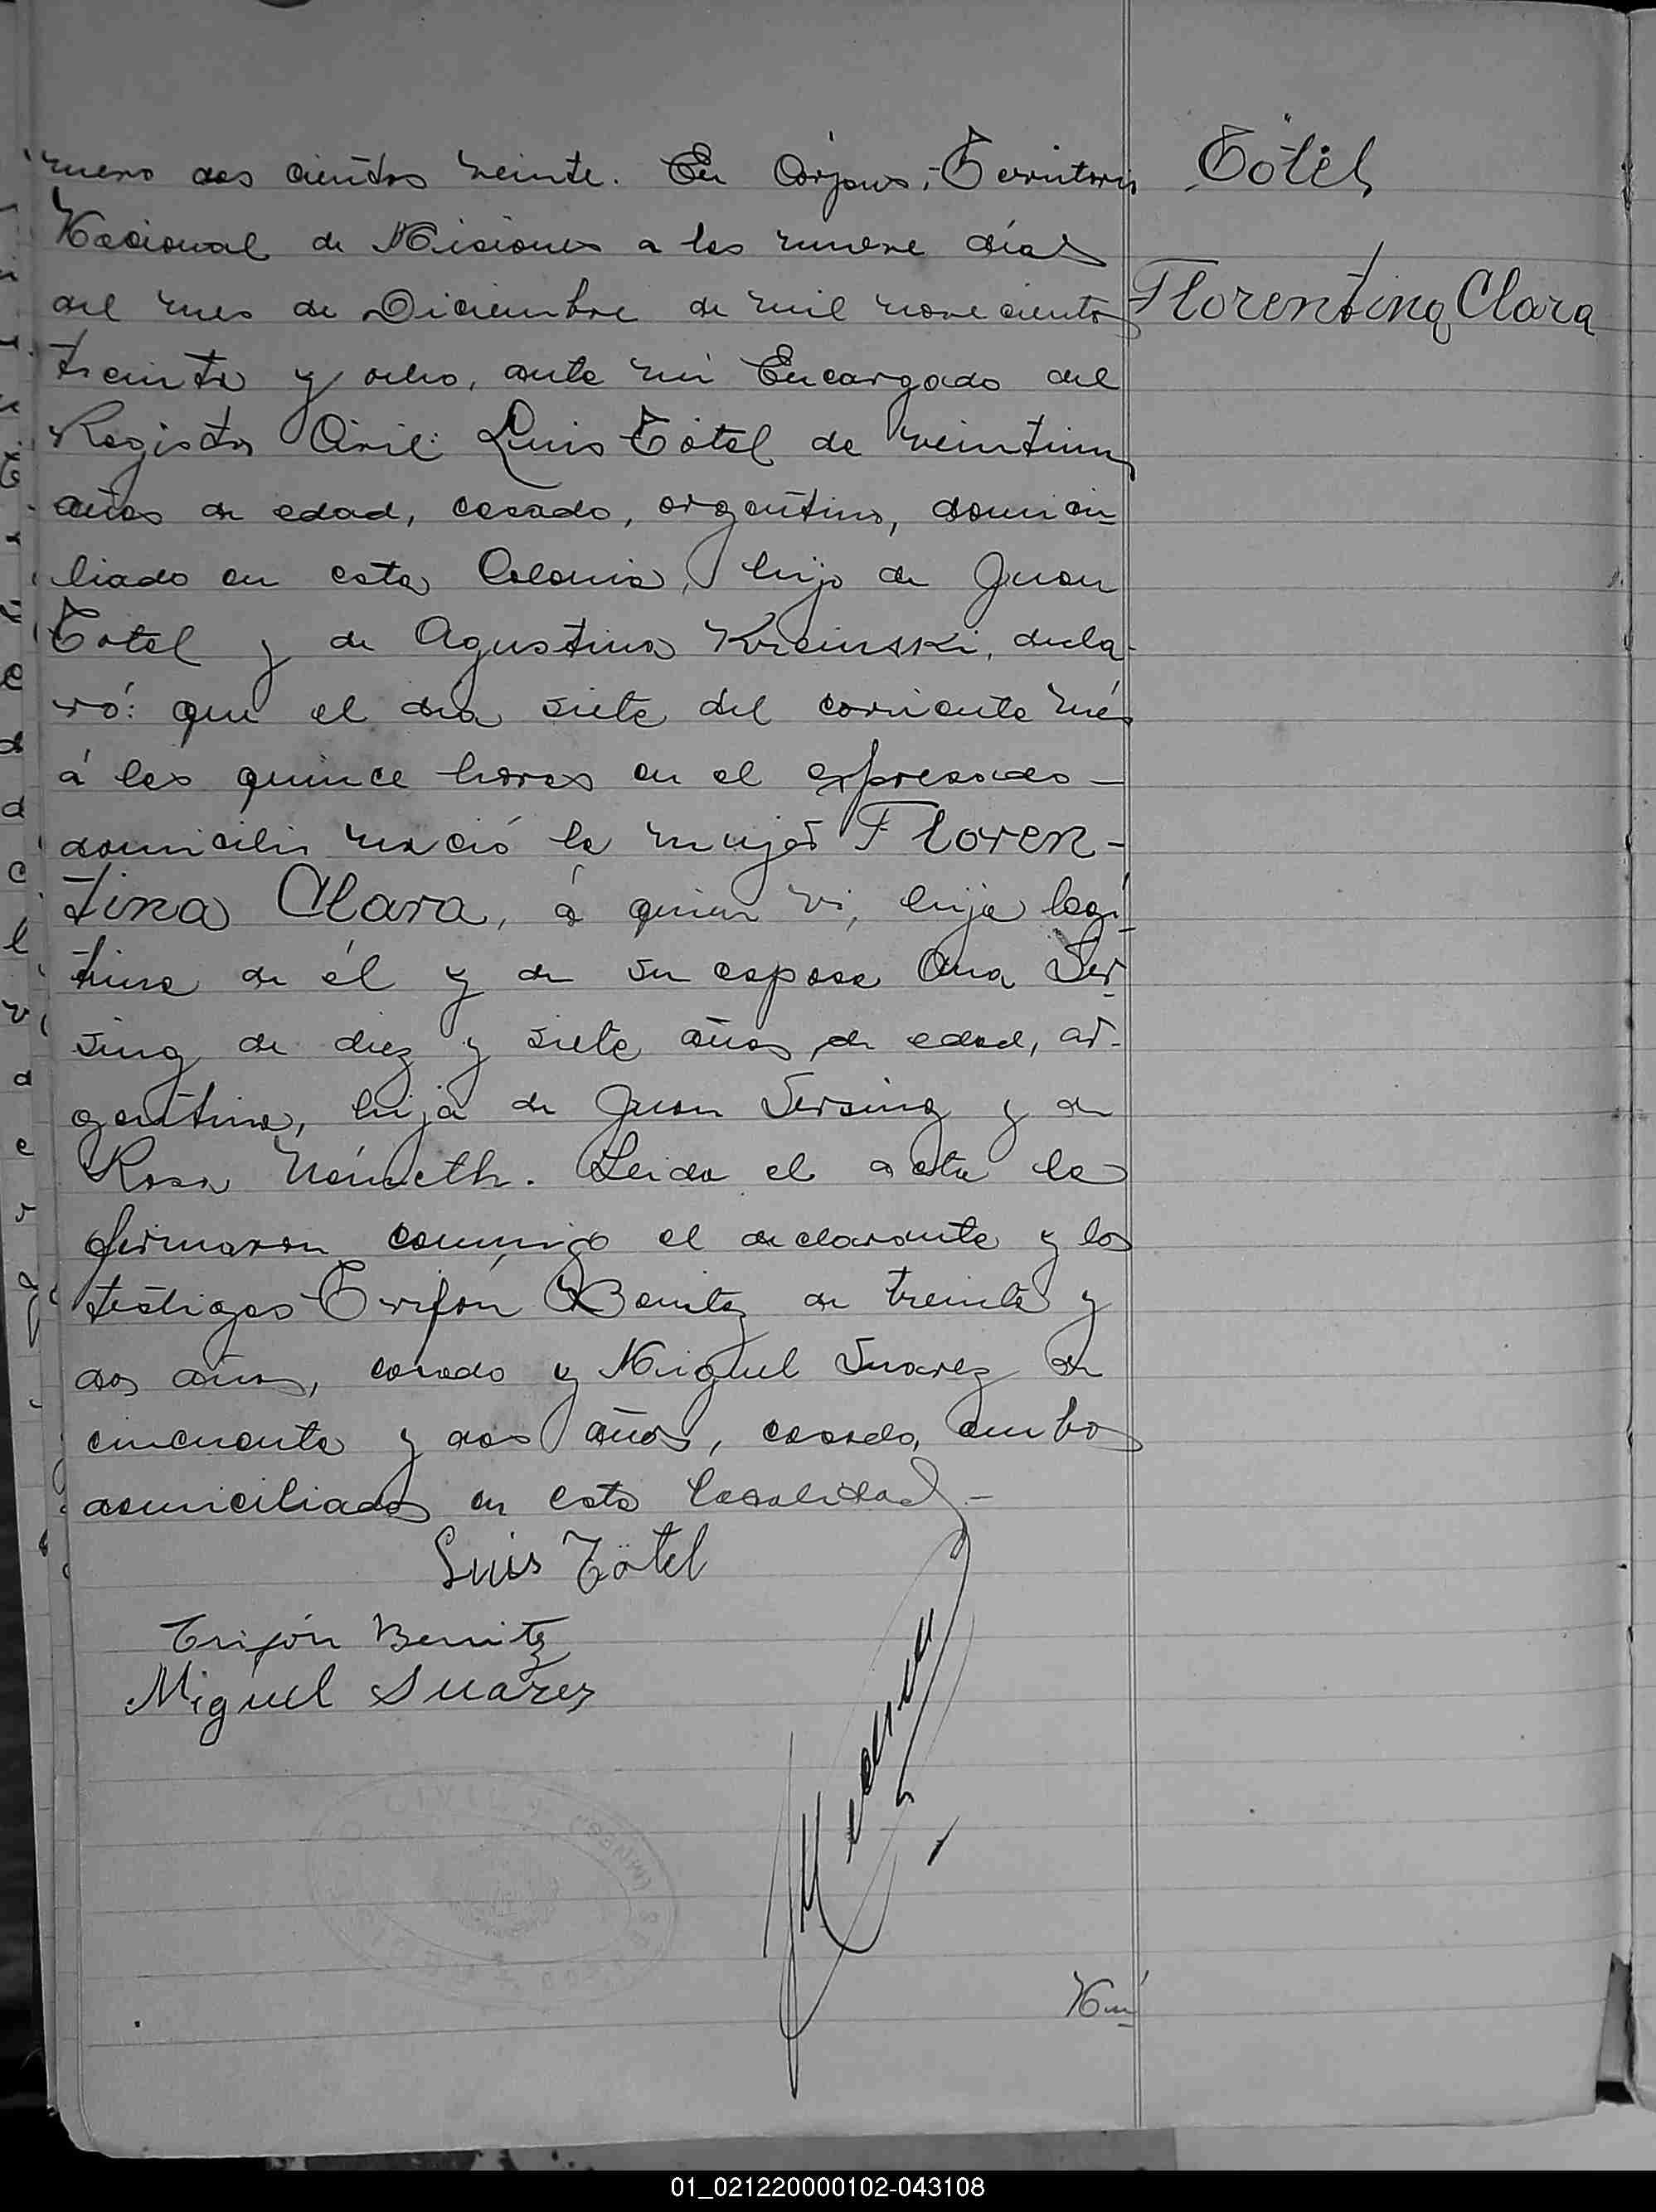 mero dos cientos veinte. En Córpus, Territorio
Nacional de Misiones a los nueve días
del mes de Diciembre de mil novecientos
treinta y ocho, ante mi Encargado del
Registro Civil: Luis Tötel de veintiun
años de edad, casado, argentino, domici-
liado en esta Colonia, hijo de Juan
Totel y de Agustina Kreinski, decla-
ró: que el día siete del corriente més
á las quince horas en el expresado -
domicilio nació la mujer Floren-
tina Clara, á quien vi, hija legí-
tima de él y de su esposa Ana Ser-
sing de diez y siete años de edad, ar-
gentina, hija de Juan Sersing y de
Rosa Németh. Leida el acta la
firmaron conmigo el declarante y los
testigos Trifón Benitez de treinta y
dos años, casado y Miguel Suarez de
cincuenta y dos años, casado, ambos
domiciliados en esta localidad -
Luis Tötel
Trifón Benitez
Miguel Suarez
Nú-
Tötel
Florentina Clara
CIVIL
01_021220000102-043108